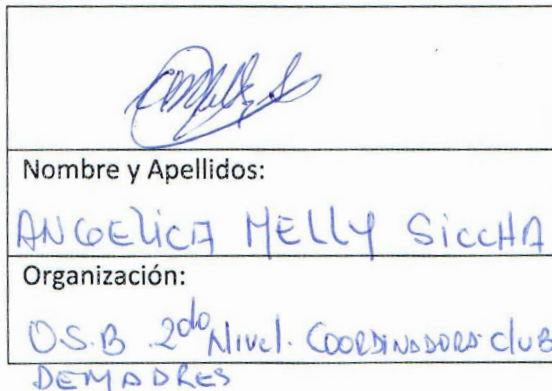 Nombre y Apellidos:
ANGELICA MELLY SICCHA
Organización:
O.S.B 2do Nivel. COORDINADORA CLUB
DE MADRES